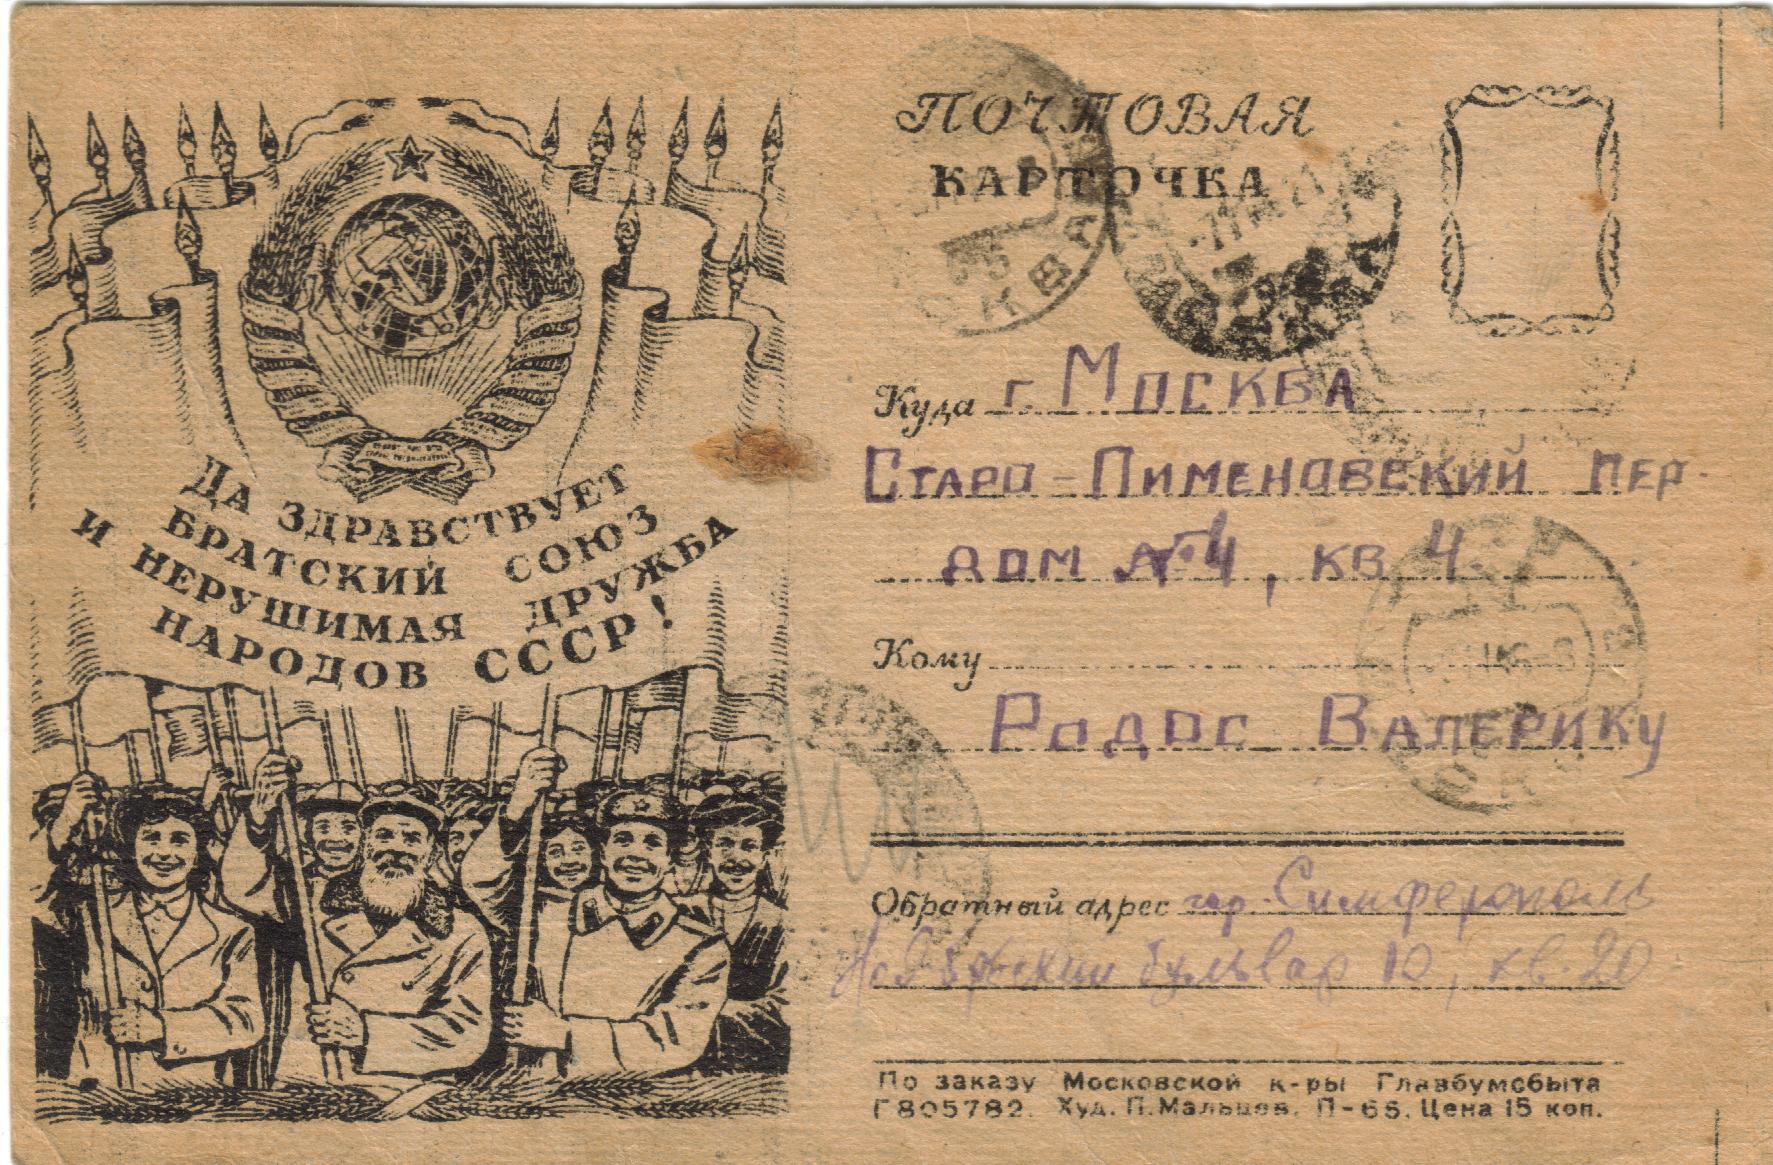 ДА ЗДРАВСТВУЕТ
БРАТСКИЙ СОЮЗ
И НЕРУШИМАЯ ДРУЖБА
НАРОДОВ СССР!
ПОЧТОВАЯ
КАРТОЧКА
Куда г. Москва
Старо-Пименовский пер.
дом №4, кв 4
Кому
Родос Валерику
Обратный адрес гор. Симферополь
бульвар 10, кв. 20
По заказу Московской к-ры Главбумсбыта
Г805782. Худ. П. Мальцев. П-65. Цена 15 коп.